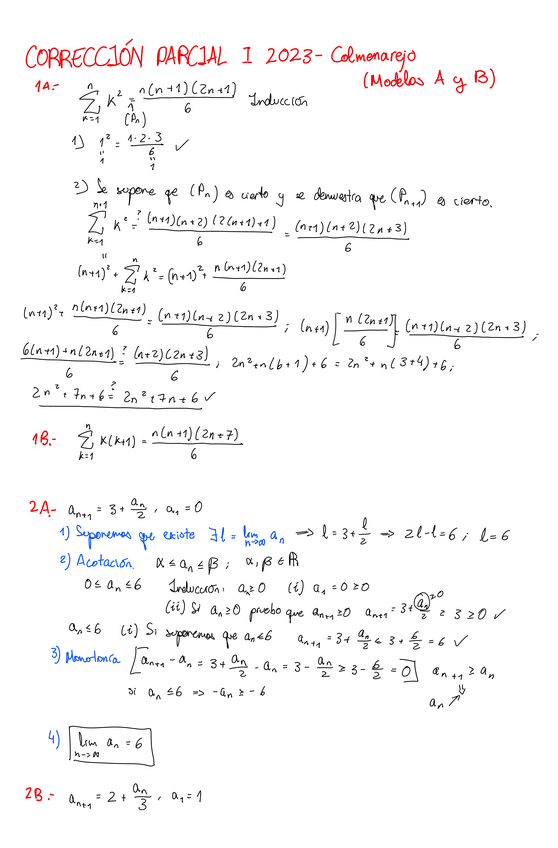 CORRECCIÓN PARCIAL I 2023- Colmenarejo
(Modelos A y B)
1A.- n∑k=1 k² = n(n+1)(2n+1)/6 Inducción
(Pn)
1) 1² = 1·2·3/6 ✓
1 1
2) Se supone que (Pn) es cierto y se demuestra que (Pn+1) es cierto.
n+1∑k=1 k² =? (n+1)(n+2)(2(n+1)+1)/6 = (n+1)(n+2)(2n+3)/6
(n+1)² + n∑k=1 k² = (n+1)² + n(n+1)(2n+1)/6
(n+1)² + n(n+1)(2n+1)/6 = (n+1)(n+2)(2n+3)/6 ; (n+1)[n(2n+1)/6] = (n+1)(n+2)(2n+3)/6 ;
6(n+1)+n(2n+1)/6 =? (n+2)(2n+3)/6 ; 2n²+n(6+1)+6 = 2n²+n(3+4)+6;
2n²+7n+6 =? 2n²+7n+6 ✓
1B.- n∑k=1 k(k+1) = n(n+1)(2n+7)/6
2A.- an+1 = 3 + an/2 , a1 = 0
1) Suponemos que existe ∃ l = lim n→∞ an ⇒ l = 3 + l/2 ⇒ 2l-l = 6 ; l = 6
2) Acotación. α ≤ an ≤ β ; α, β ∈ ℝ
0 ≤ an ≤ 6 Inducción: an ≥ 0 (i) a1 = 0 ≥ 0
(ii) Si an ≥ 0 pruebo que an+1 ≥ 0 an+1 = 3 + an/2 ≥0 ≥ 3 ≥ 0 ✓
an ≤ 6 (i) Si suponemos que an ≤ 6 an+1 = 3 + an/2 ≤ 3 + 6/2 = 6 ✓
3) Monotonía [an+1 - an = 3 + an/2 - an = 3 - an/2 ≥ 3 - 6/2 = 0] an+1 ≥ an
si an ≤ 6 ⇒ -an ≥ -6 ⇓
an ↗
4) lim n→∞ an = 6
2B.- an+1 = 2 + an/3 , a1 = 1